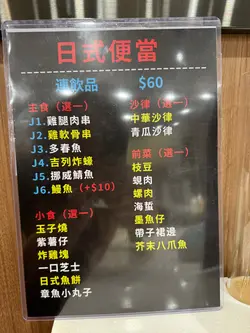 日式便當
連飲品 $60
主食（選一）
J1. 雞腿肉串
J2. 雞軟骨串
J3. 多春魚
J4. 吉列炸蠔
J5. 挪威鯖魚
J6. 鰻魚（+$10）
小食（選一）
玉子燒
紫薯仔
炸雞塊
一口芝士
日式魚餅
章魚小丸子
沙律（選一）
中華沙律
青瓜沙律
前菜（選一）
枝豆
蜆肉
螺肉
海蜇
墨魚仔
帶子裙邊
芥末八爪魚